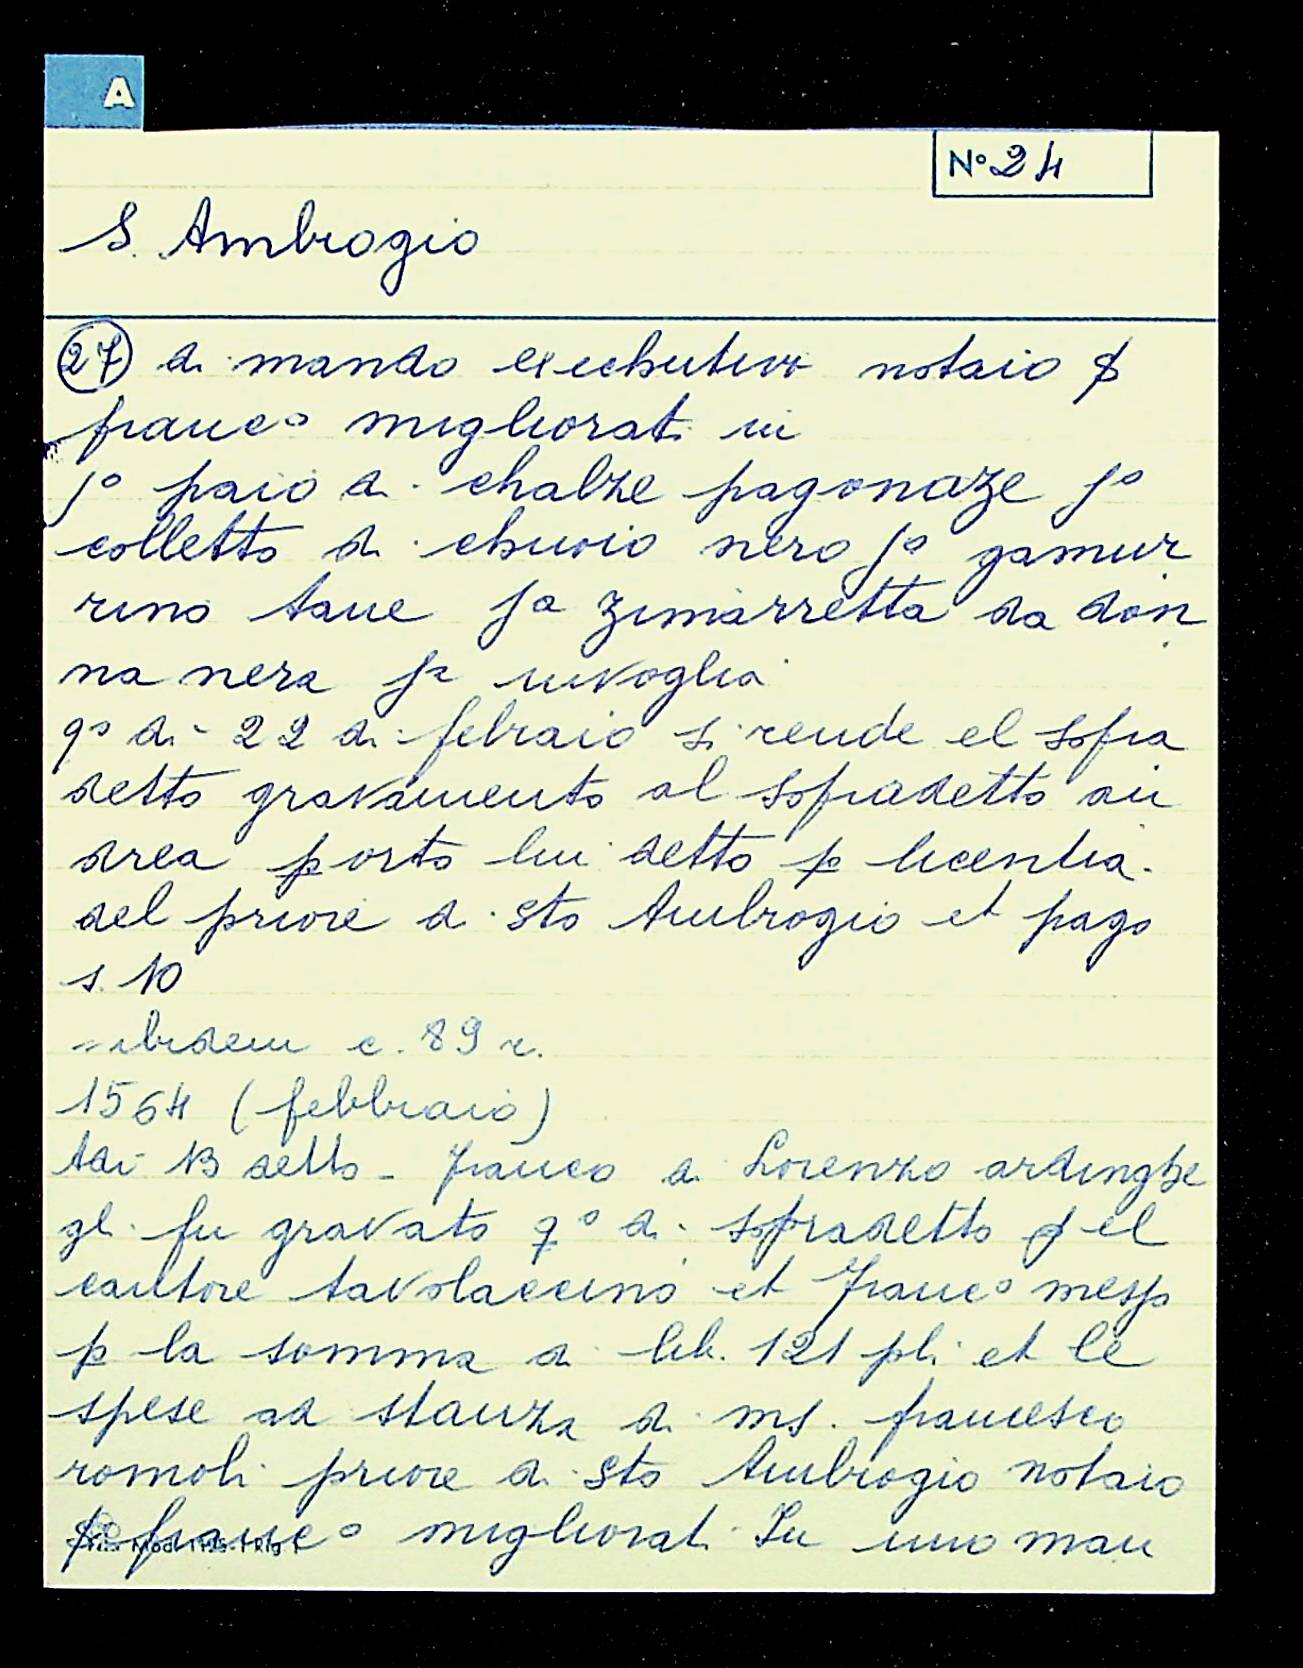 A
N° 24
S. Ambrogio
27 di mando executivo notaio ꝭ
franc° migliorati in
j° paio di chalze pagonaze j°
colletto di chuoio nero j° gamur
rino tane ja zimarretta da don
na nera ja invoglia
q° di 22 di febraio si rende el sopra
detto gravamento al sopradetto an
drea porto lui detto p licentia
del priore di sto Ambrogio et pago
s. 10
ibidem c. 89 r.
1564 (febbraio)
Adi 13 detto - Franco di Lorenzo ardinghe
gli fu gravato q° di sopradetto p el
cantore tavolaccino et Franc° messo
p la somma di lib. 121 pli et le
spese ad stanza di ms. francesco
romoli priore di sto Ambrogio notaio
franc° migliorati In uno man